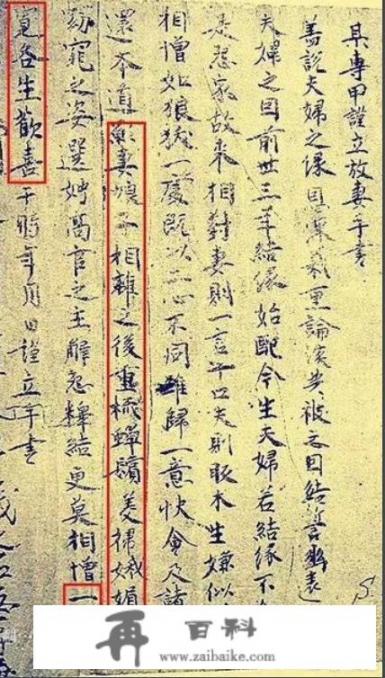 某專甲謹立放妻手書
盖說夫婦之緣恩深義重論談共被之因結誓幽遠
夫婦之因前世三年結緣始配今生夫婦若結緣不
是怨家故來相對妻則一言十口夫則販木生嫌似
相憎如狼一處既以二心不同難歸一意快會及諸
還本道願妻娘子相離之後重梳蟬鬢美掃娥媚
窈窕之姿選娉高官之主解怨釋結更莫相憎一
寬各生歡喜于時年月日謹立手書
S.
再百科
www.zaibaike.com